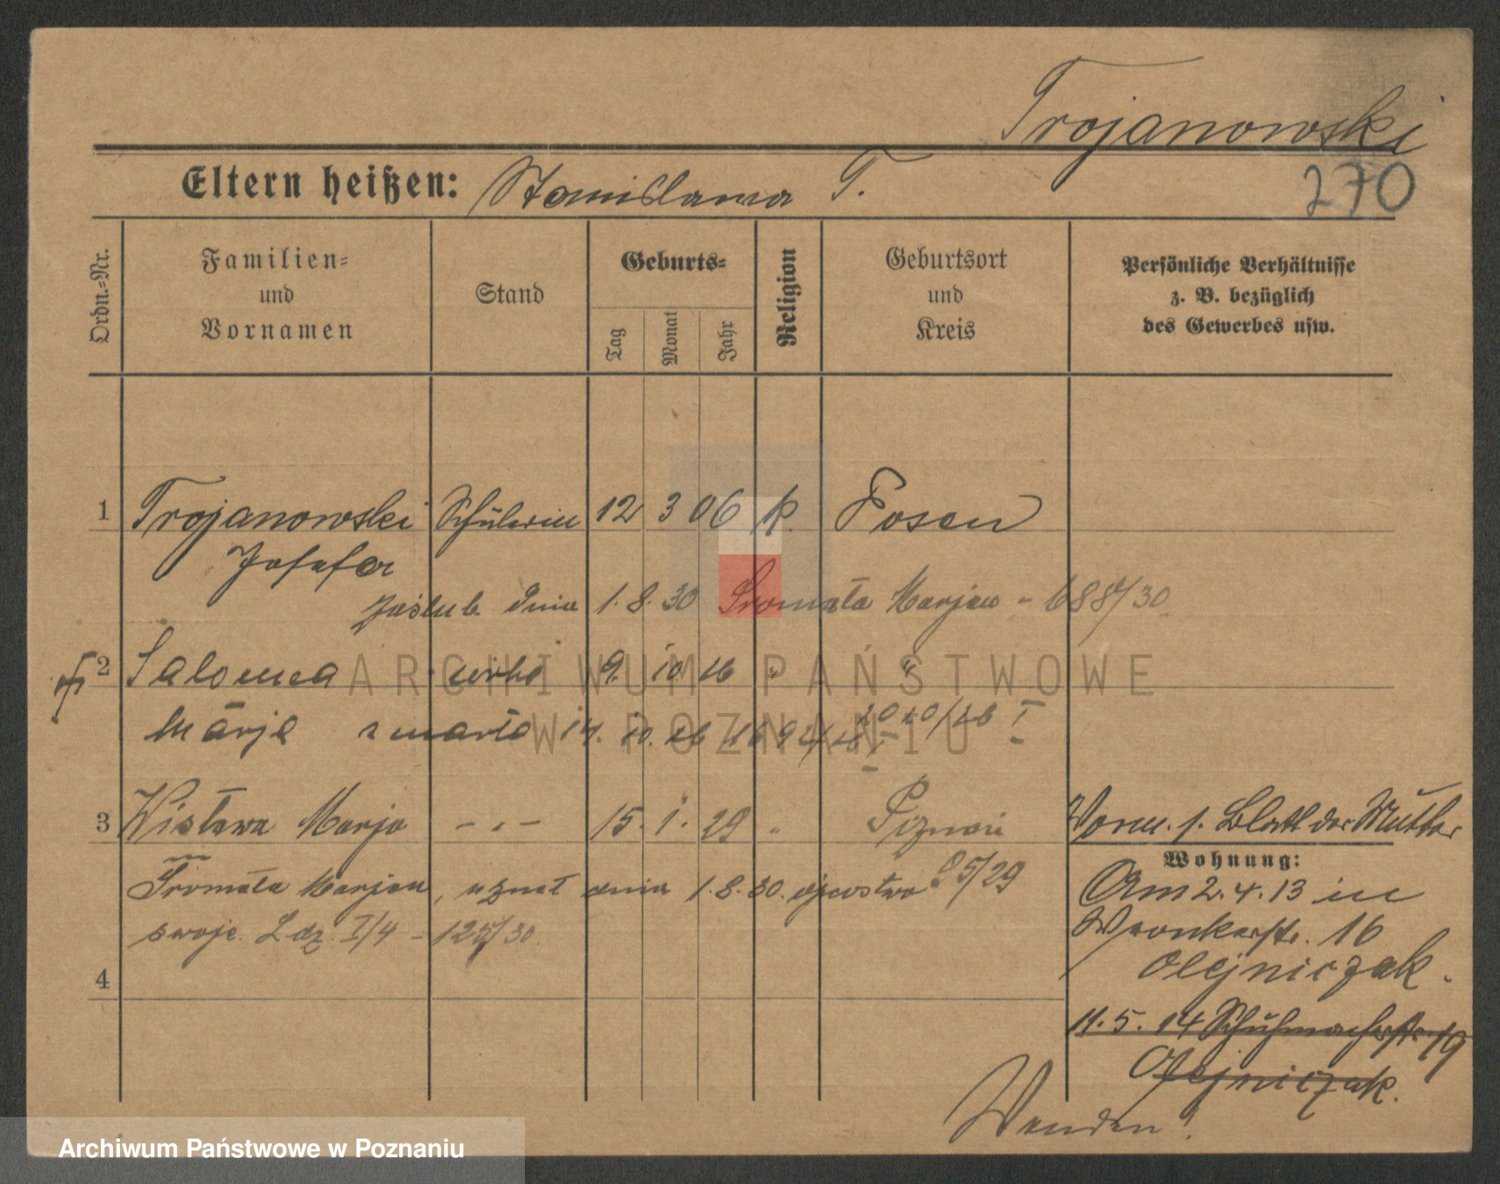 Trojanowski
Eltern heißen: Stanislawa T.
270
Ordn.-Nr.
Familien- und Vornamen
Stand
Geburts-
Tag
Monat
Jahr
Religion
Geburtsort und Kreis
Persönliche Verhältnisse z. B. bezüglich des Gewerbes usw.
1 Trojanowski Schülerin 12 3 06 k. Posen
Josefa
zaślub. dnia 1. 8. 30 Marjan - 688/30
2 Salomea 9. 10 16 " "
Marja zmarła 14. 10. 16
3 Wisława Marja - " - 15. 1. 29 " Poznań
Vorm. s. Blatt der Mutter
Marjan, uznał dnia 1. 8. 30. ojcostwo 95/29
swoje. L dz. I/4 - 125/30.
4
Wohnung:
Am 2. 4. 13 in
Wronkerstr. 16
Olejniczak.
11. 5. 14 Schuhmacherstr. 19
Olejniczak.
Wenden!
ARCHIWUM PAŃSTWOWE
W POZNANIU
Archiwum Państwowe w Poznaniu